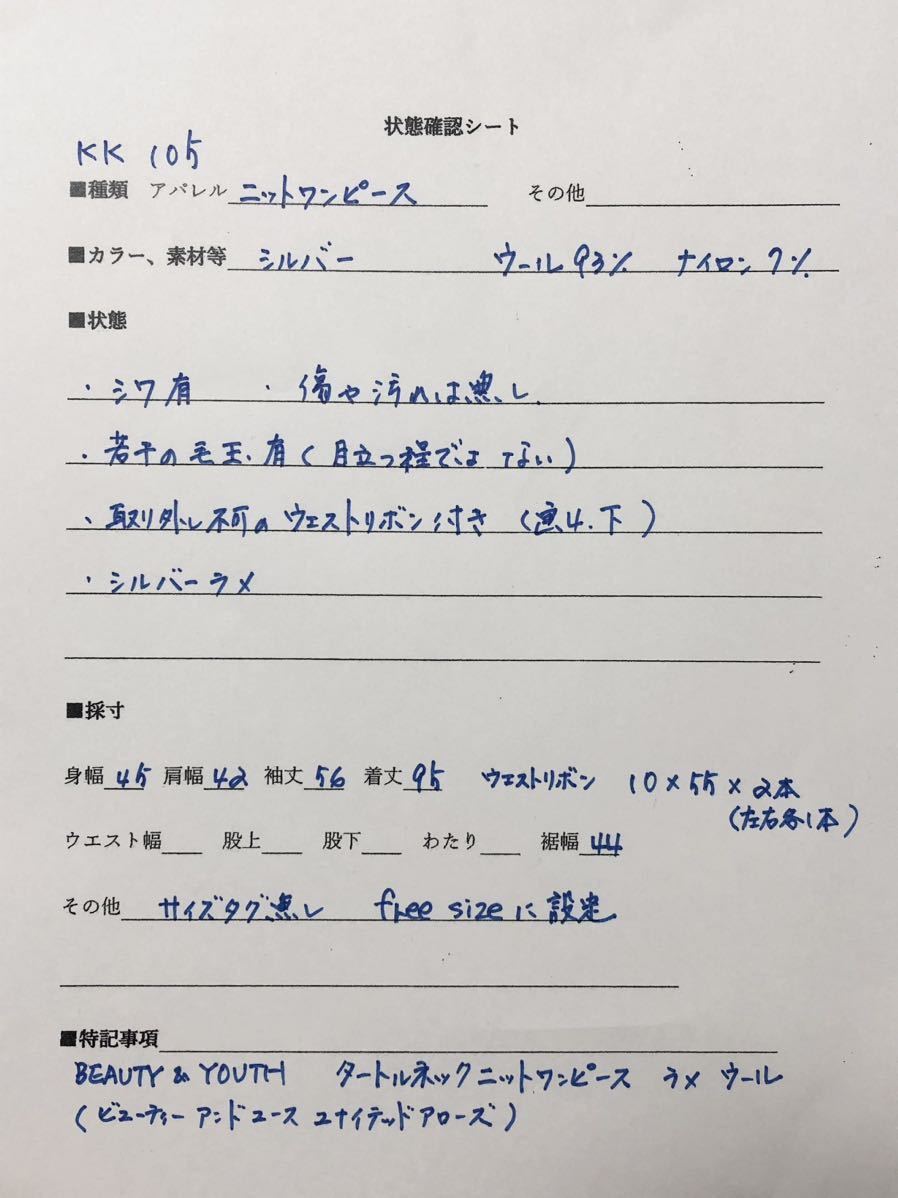 状態確認シート
KK 105
■種類 アパレル ニットワンピース その他
■カラー、素材等 シルバー ウール93% ナイロン7%
■状態
・シワ有 ・傷や汚れは無し.
・若干の毛玉有(目立つ程ではない)
・取り外し不可のウエストリボン付き (画4.下)
・シルバーラメ
■採寸
身幅 45 肩幅 42 袖丈 56 着丈 95 ウエストリボン 10×55×2本
(左右各1本)
ウエスト幅 股上 股下 わたり 裾幅 44
その他 サイズタグ無し free sizeに設定
■特記事項
BEAUTY & YOUTH タートルネックニットワンピース ラメ ウール
(ビューティーアンドユース ユナイテッドアローズ)